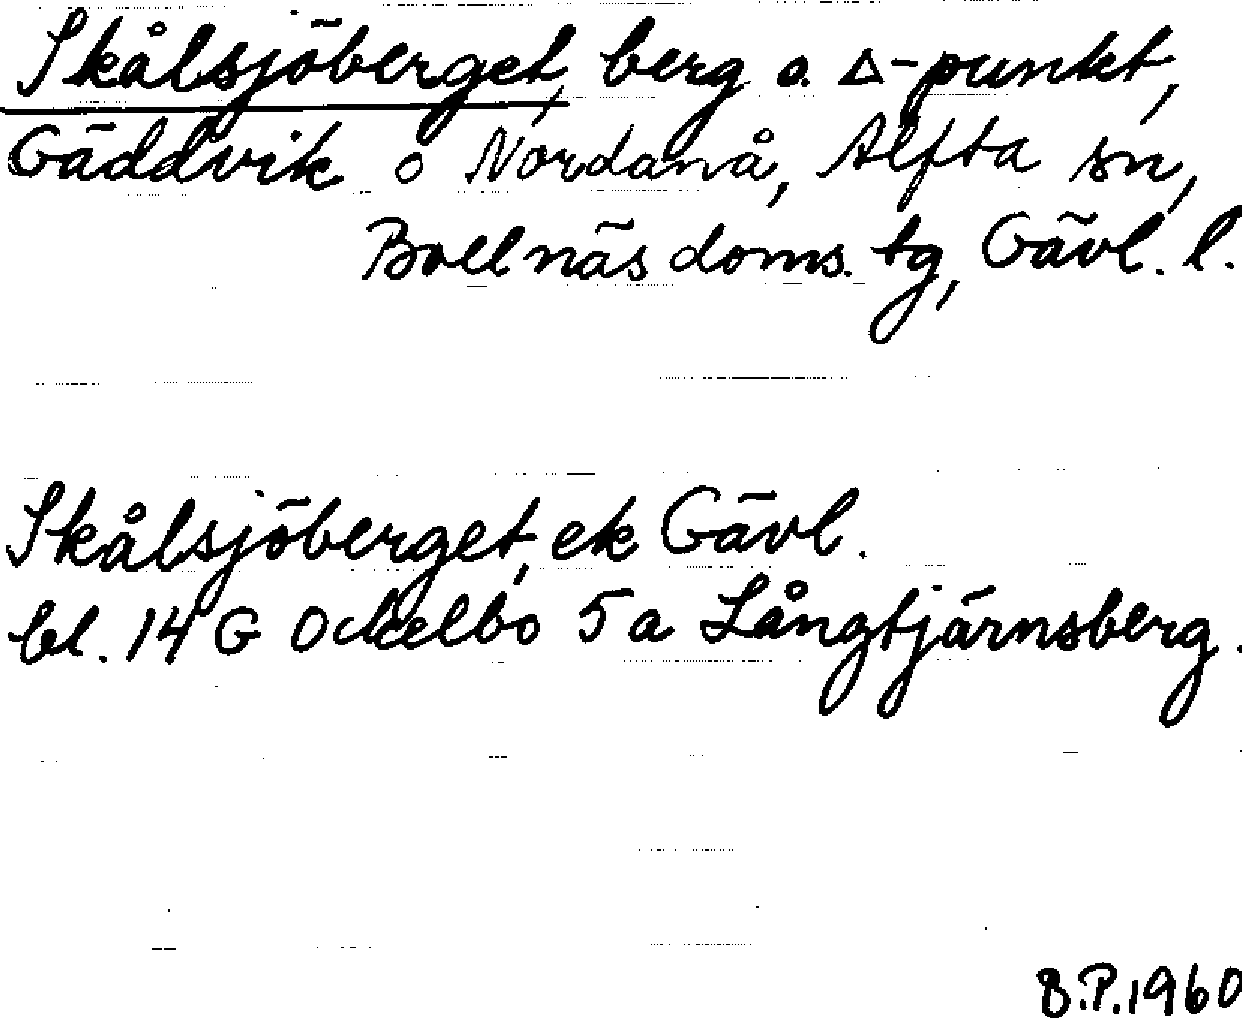 Skålsjöberget, berg o. Δ-punkt,
Gäddvik o Nordanå, Alfta sn,
Bollnäs doms. tg, Gävl. l.
Skålsjöberget, ek Gävl.
bl. 14 G Ockelbo 5 a Långtjärnsberg.
B.P.1960